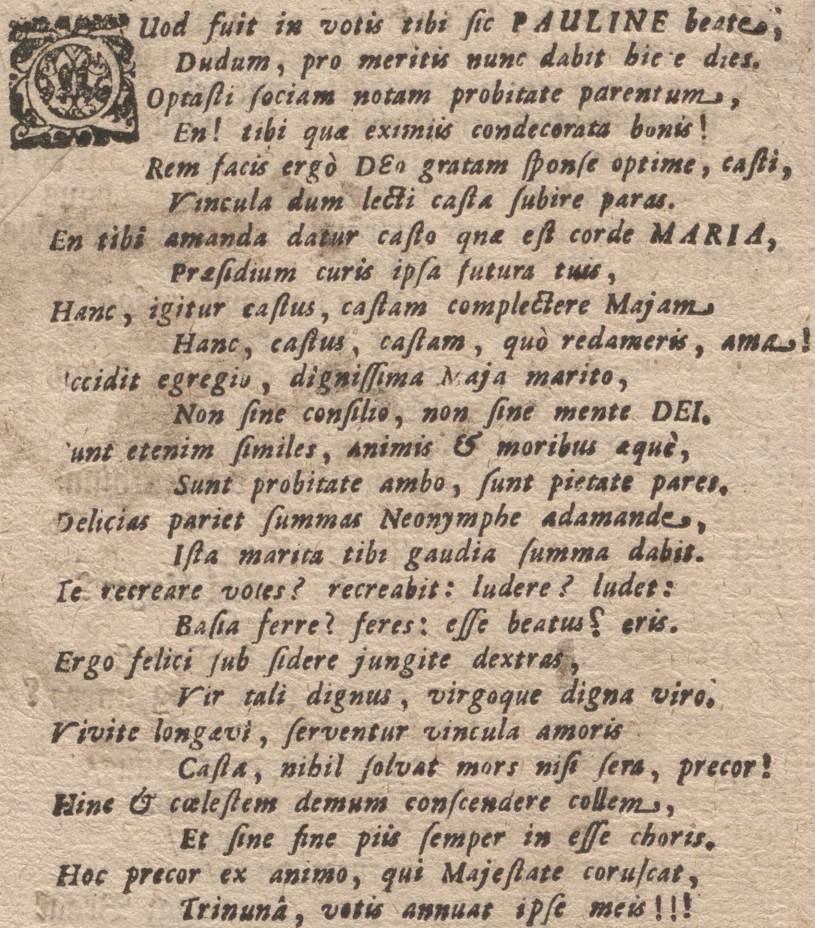 QUod fuit in votis tibi ſic PAULINE beate,
Dudum, pro meritis nunc dabit hicce dies.
Optaſti ſociam notam probitate parentum,
En! tibi quæ eximiis condecorata bonis!
Rem facis ergò DEo gratam ſponſe optime, caſti,
Vincula dum lecti caſta ſubire paras.
En tibi amanda datur caſto quæ eſt corde MARIA,
Præſidium curis ipſa futura tuis,
Hanc, igitur caſtus, caſtam complectere Majam
Hanc, caſtus, caſtam, quò redameris, ama!
ccidit egregio, digniſſima Maja marito,
Non ſine conſilio, non ſine mente DEI.
unt etenim ſimiles, animis & moribus æquè,
Sunt probitate ambo, ſunt pietate pares.
Delicias pariet ſummas Neonymphe adamande,
Iſta marita tibi gaudia ſumma dabit.
Te recreare voles? recreabit: ludere? ludet:
Baſia ferre? feres: eſſe beatus? eris.
Ergo felici ſub ſidere jungite dextras,
Vir tali dignus, virgoque digna viro.
Vivite longævi, ſerventur vincula amoris
Caſta, nihil ſolvat mors niſi ſera, precor!
Hinc & cœleſtem demum conſcendere collem,
Et ſine fine piis ſemper in eſſe choris.
Hoc precor ex animo, qui Majeſtate coruſcat,
Trinunâ, votis annuat ipſe meis!!!